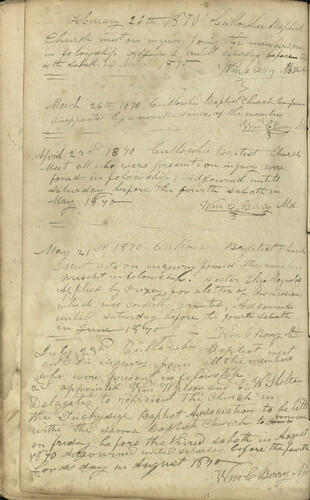 February 26th 1870 Cullowhee Baptist
Church met on inquiry found the members
in fellowship Adjourned untill Saturday before the
4th Sabath in March 1870
Wm C Berry Md
March 26th 1870 Cullowhee Baptist Church Conference
disappointed by a
of the members
Wm C Berry Md
April 23rd 1870 Cullowhee Baptist Church
Meet all who were present, on inquiry were
found in felowship. Adjourned untill
Saturday before the fourth sabath in
May 1870
Wm C Berry Md
May 21st 1870 Cullowhee Baptist Church
Meet
on inquiry found the members
present in felowship. Sister Eliza Reynolds
Applied by Proxey for a letter of dismission
which was cordially granted, Adjourned
untill saturday before the fourth sabath
in June 1870
Wm C Berry Md
July 23d Cullowhee Baptist meet
and on inquiry found all the members
who were present in felowship
appointed Wm Wilson and E. W Shelton
Delagates to represent the Church in
the Tuckaseige Baptist Association to be held
withe the savana Baptist Church to convene
on friday before the third sabath in August
1870 Adjourned untill saturday before the fourth
Lords day in August 1870
Wm C Berry Md